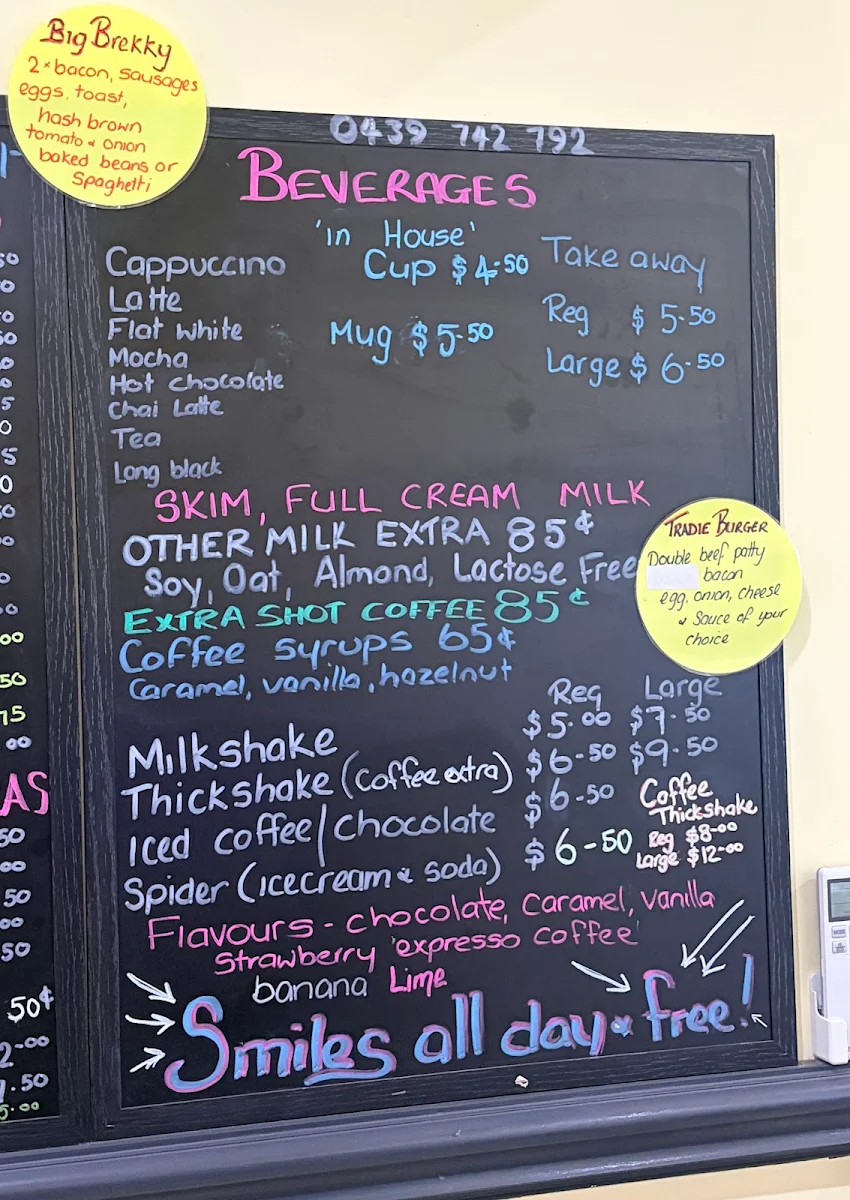 Big Brekky
2 × bacon, sausages
eggs, toast,
hash brown
tomato & onion
baked beans or
Spaghetti
0439 742 792
BEVERAGES
'in House'
Cup $4-50
Mug $5-50
Take away
Reg $5-50
Large $6-50
Cappuccino
Latte
Flat white
Mocha
Hot chocolate
Chai Latte
Tea
Long black
SKIM, FULL CREAM MILK
OTHER MILK EXTRA 85¢
Soy, Oat, Almond, Lactose Free
EXTRA SHOT COFFEE 85¢
Coffee syrups 65¢
Caramel, vanilla, hazelnut
TRADIE BURGER
Double beef patty
bacon
egg, onion, cheese
& sauce of your
choice
Reg Large
Milkshake $5-00 $7-50
Thickshake (coffee extra) $6-50 $9-50
Iced coffee/chocolate $6-50
Spider (icecream & soda) $6-50
Coffee
Thickshake
Reg $8-00
Large $12-00
Flavours - chocolate, caramel, vanilla
Strawberry 'expresso coffee'
banana Lime
Smiles all day & free!
50
00
50
AS
50
00
50
00
50
50¢
2-00
7.50
5-00